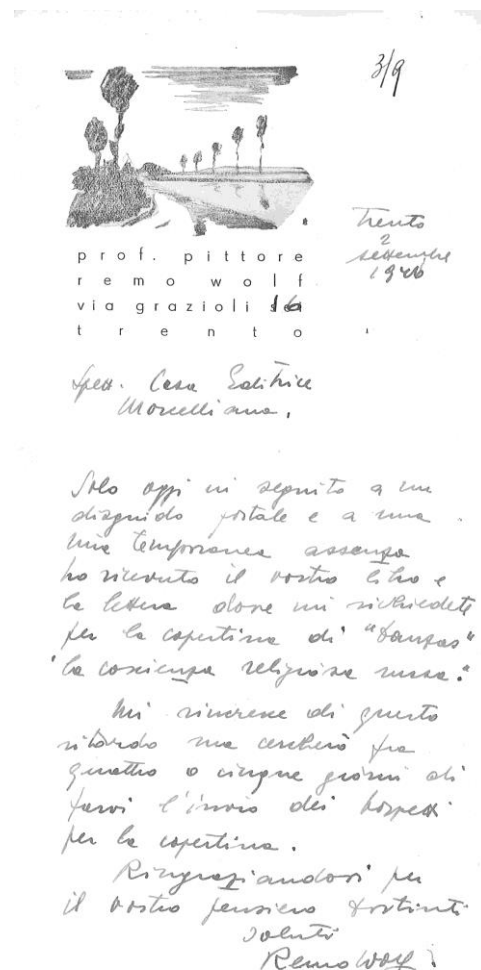 3/9
Trento
2
settembre
1946
prof. pittore
remo wolf
via grazioli 16
trento
Spett. Casa Editrice
Morcelliana,
Solo oggi in seguito a un
disguido postale e a una
mia temporanea assenza
ho ricevuto il vostro libro e
la lettera dove mi richiedete
per la copertina di "Danzas"
"la coscienza religiosa russa."
Mi rincresce di questo
ritardo ma cercherò fra
quattro o cinque giorni di
farvi l'invio dei bozzetti
per la copertina.
Ringraziandovi per
il vostro pensiero distinti
saluti
Remo Wolf